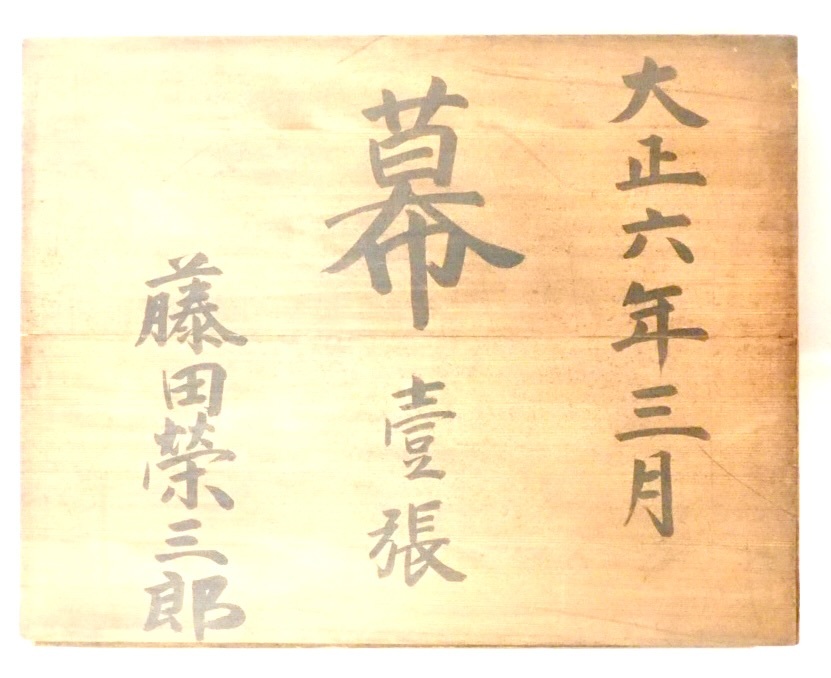 大正六年三月
幕壹張
藤田榮三郎